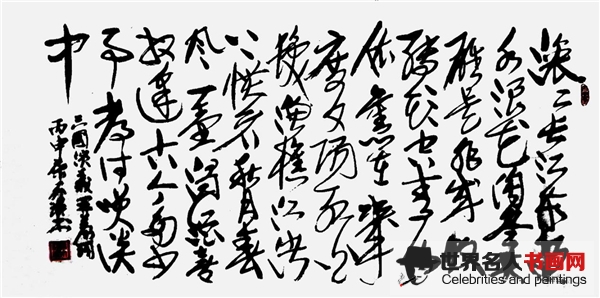 滚滚长江东逝
水浪花淘尽英
雄是非成败
转头空青山
依旧在几
度夕阳红白
发渔樵江渚
上惯看秋月春
风一壶浊酒喜
相逢古今多少
事都付笑谈
中
三国演义开篇词
丙申年
世界名人书画网
Celebrities and paintings